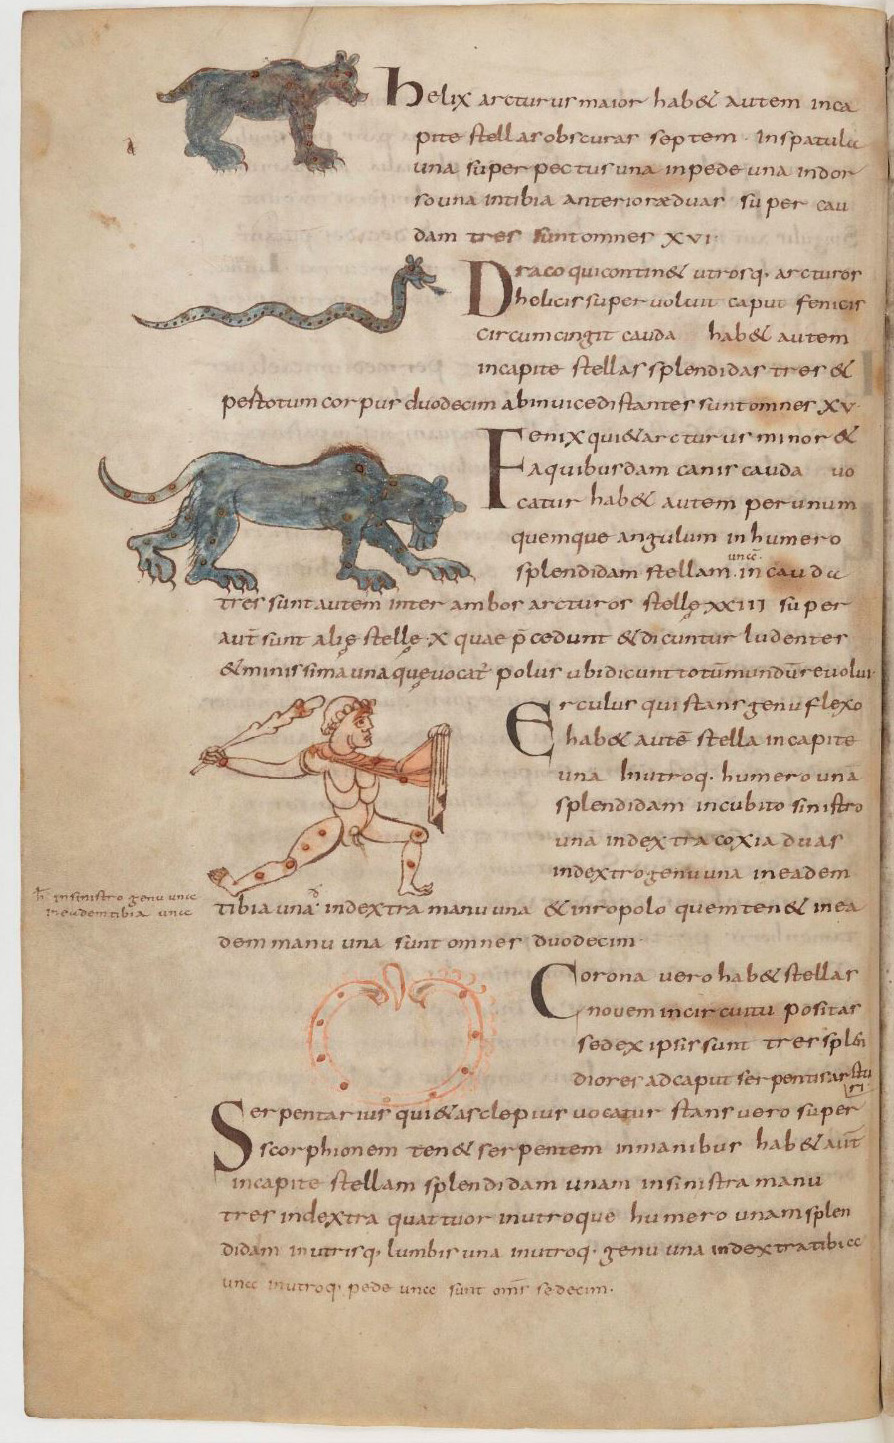 helix arcturus maior hab& autem inca
pite stellas obscuras septem. Inspatula
una super pectus una inpede una indor
so una intibia anteriore duas super cau
dam tres sunt omnes XVI
Draco qui contin& utrosq. arcturos
helicis supervoluit caput fenicis
circumcingit cauda hab& autem
incapite stellas splendidas tres &
pestotum corpus duodecim abinvice distantes sunt omnes XV
Fenix qui & arcturus minor &
aquibusdam canis cauda uo
catur hab& autem per unum
quemque angulum in humero
unā.
splendidam stellam. in cauda
tres sunt autem inter ambos arcturos stellę XXIII super
aut̄ sunt alię stellę X quae p̄cedunt & dicuntur ludentes
& minissima una quę uocat̄ polus ubi dicunt totū mundū reuolui
Erculus qui stans genu flexo
hab& autē stella in capite
una Inutroq. humero unā
splendidam incubito sinistro
unā indextra coxia duas
indextro genu una ineadem
h̄ insinistro genu una
ineadem tibia una
tibia una. indextra manu una & inropolo quem ten& inea
dem manu una sunt omnes duodecim.
Corona uero hab& stellas
nouem in circuitu positas
sed ex ipsis sunt tres splen
diores ad caput serpentis arctu
ri
Serpentarius qui & asclepius uocatur stans uero super
scorphionem ten& serpentem inmanibus hab& aut̄
incapite stellam splendidam unam insinistra manu
tres indextra quattuor inutroque humero unam splen
didam inutrisq. lumbis una inutroq. genu una indextra tibia
una inutroq. pede una sunt om̄s sedecim.